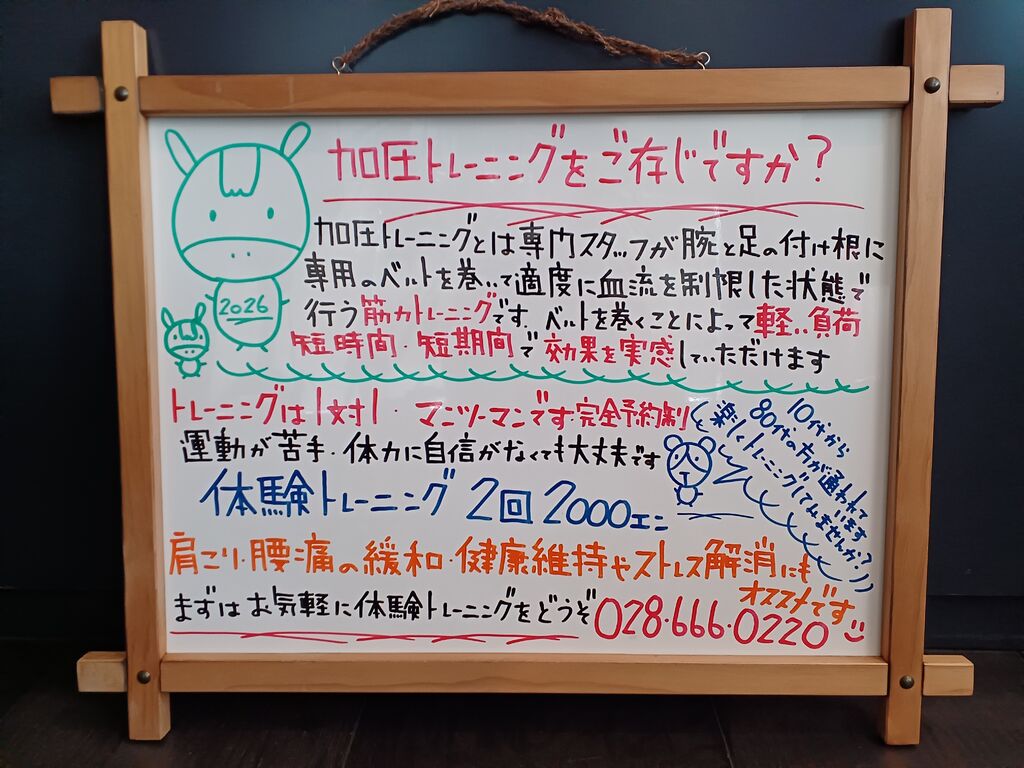 加圧トレーニングをご存じですか?
加圧トレーニングとは専門スタッフが腕と足の付け根に
専用のベルトを巻いて適度に血流を制限した状態で
行う筋力トレーニングです。ベルトを巻くことによって軽い負荷
短時間・短期間で効果を実感していただけます
2026
トレーニングは1対1・マンツーマンです完全予約制
運動が苦手・体力に自信がなくても大丈夫です
10代から
80代の方が通われて
います
楽しくトレーニングしてみませんか?
体験トレーニング2回2000エン
肩こり・腰痛の緩和・健康維持やストレス解消にも
オススメです
まずはお気軽に体験トレーニングをどうぞ 028・666・0220